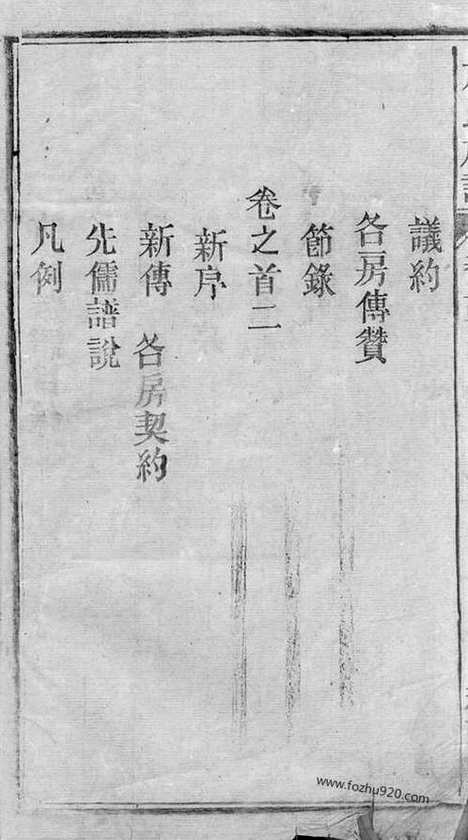 議約
各房傳贊
節錄
卷之首二
新序
新傳 各房契約
先儒譜說
凡例
www.fozhu920.com